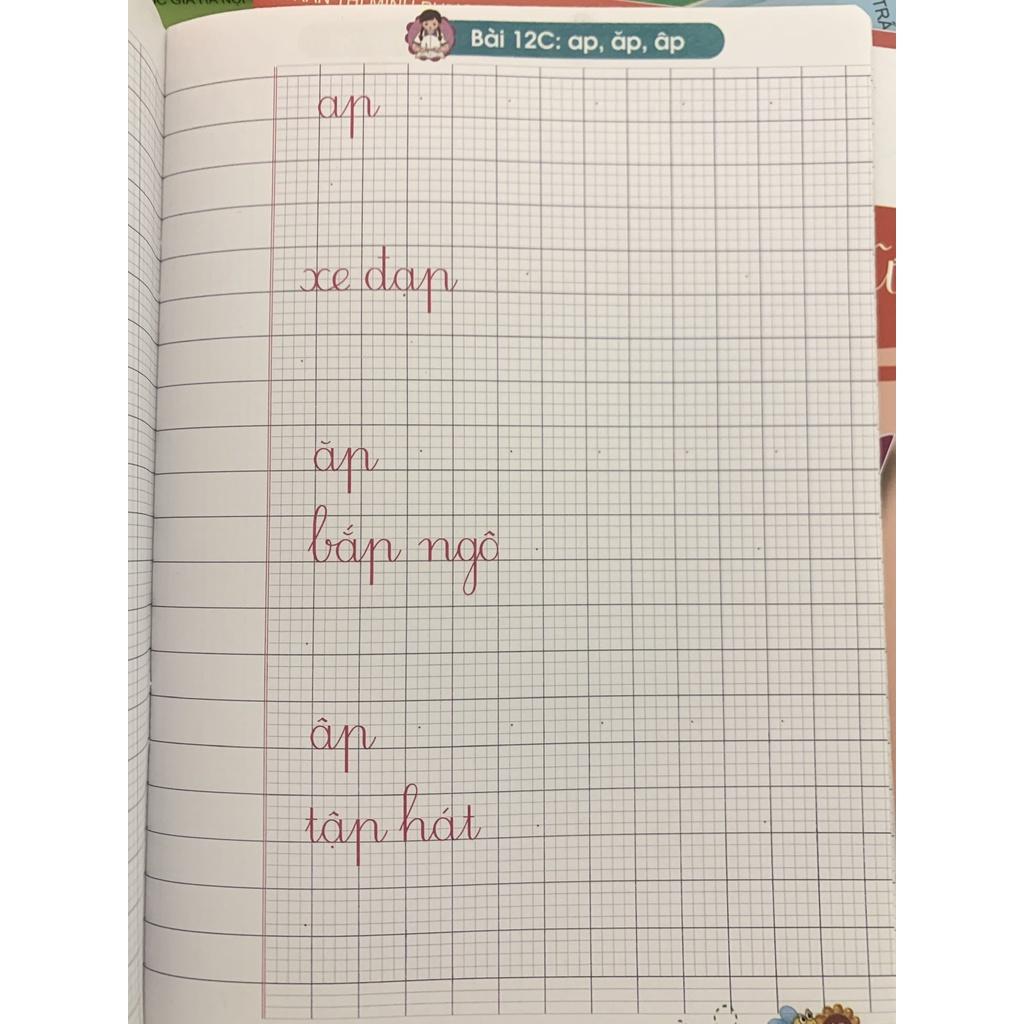 Bài 12C: ap, ăp, âp
ap
xe đạp
ăp
bắp ngô
âp
tập hát